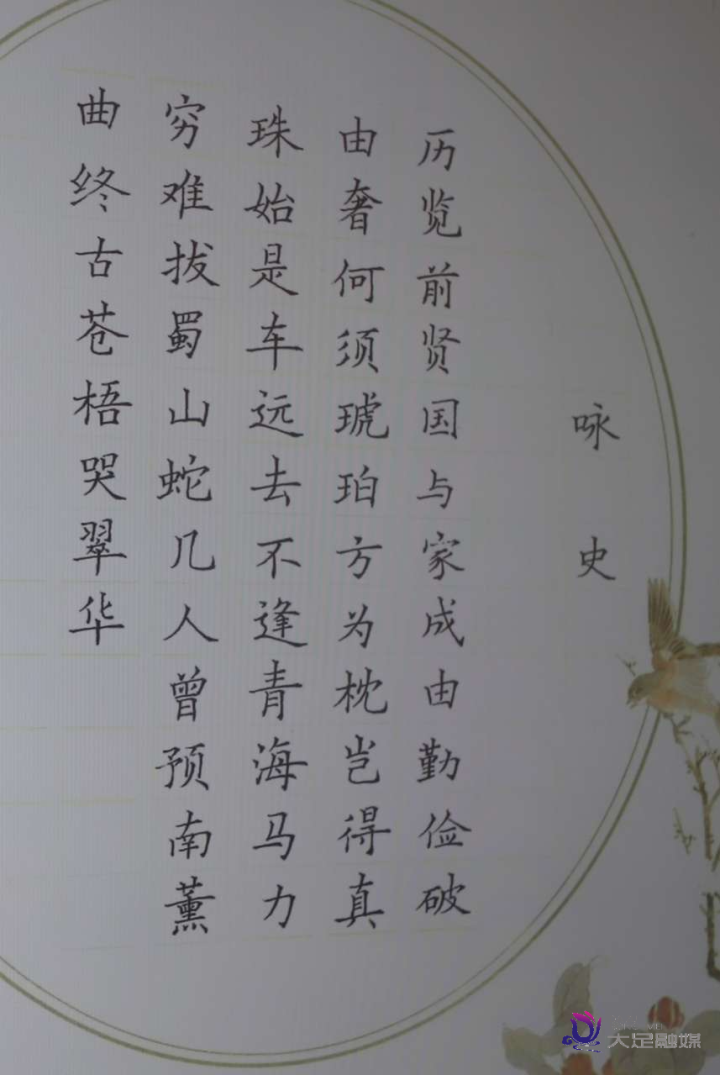 咏史
历览前贤国与家成由勤俭破
由奢何须琥珀方为枕岂得真
珠始是车远去不逢青海马力
穷难拔蜀山蛇几人曾预南薰
曲终古苍梧哭翠华
大足融媒